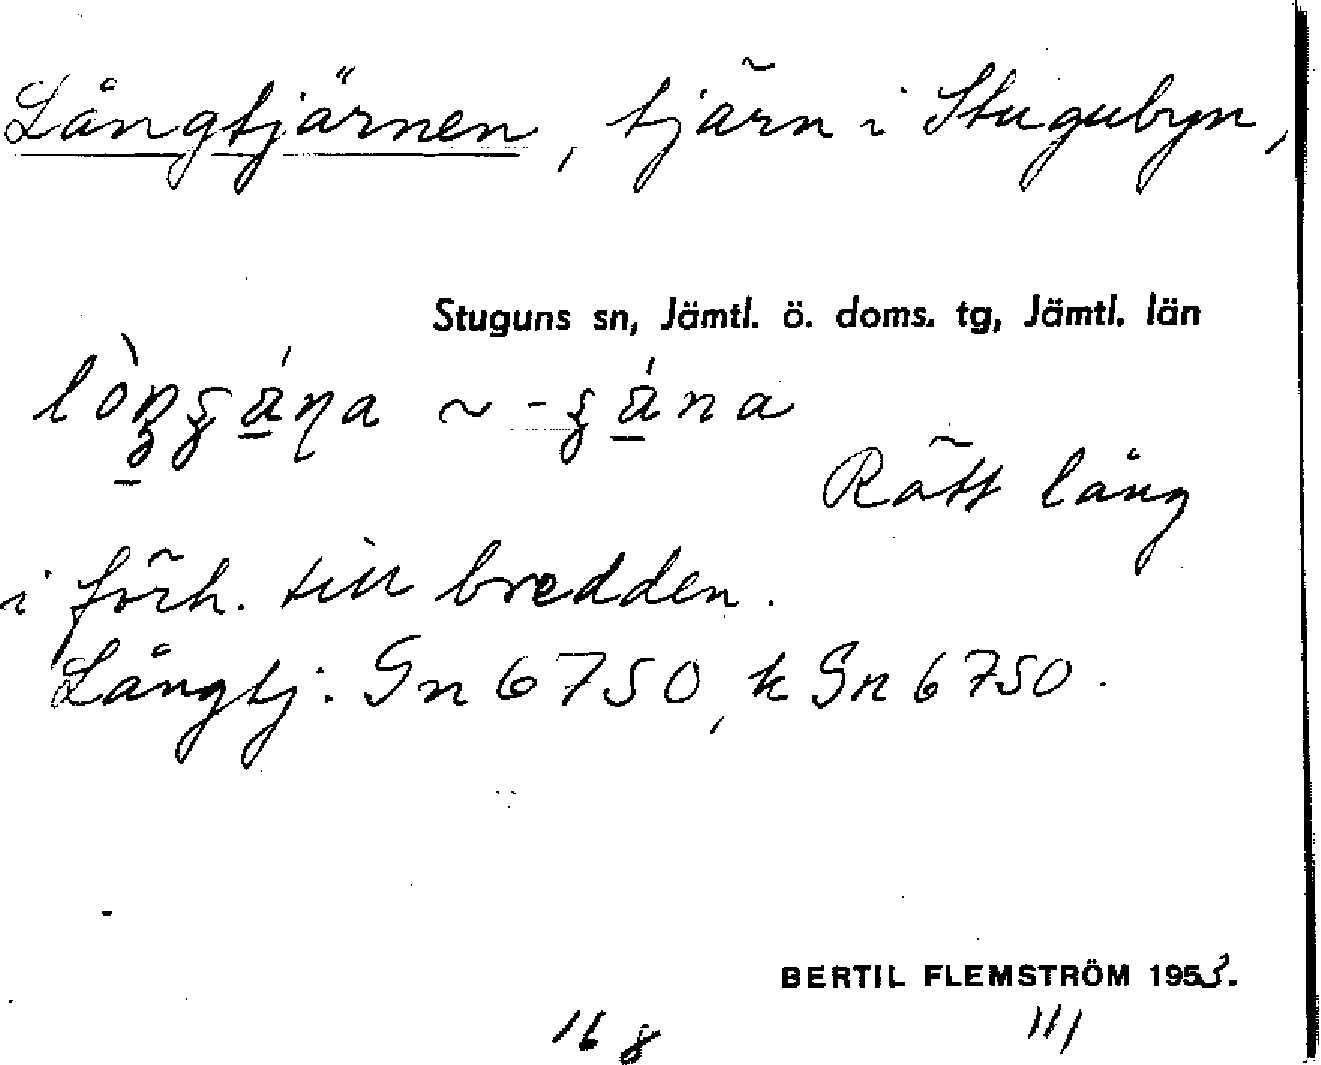 Långtjärnen, tjärn i Stugubyn,
Stuguns sn, Jämtl. ö. doms. tg, Jämtl. län
Rätt lång
i förh. till bredden.
Långtj. Gn 6750, k Gn 6750.
BERTIL FLEMSTRÖM 1953.
16 8